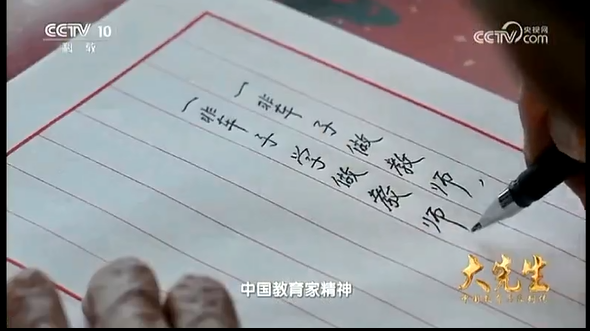 CCTV 10
科教
央视网
CCTV.com
一辈子做教师，
一辈子学做教师
大先生
中国教育家精神